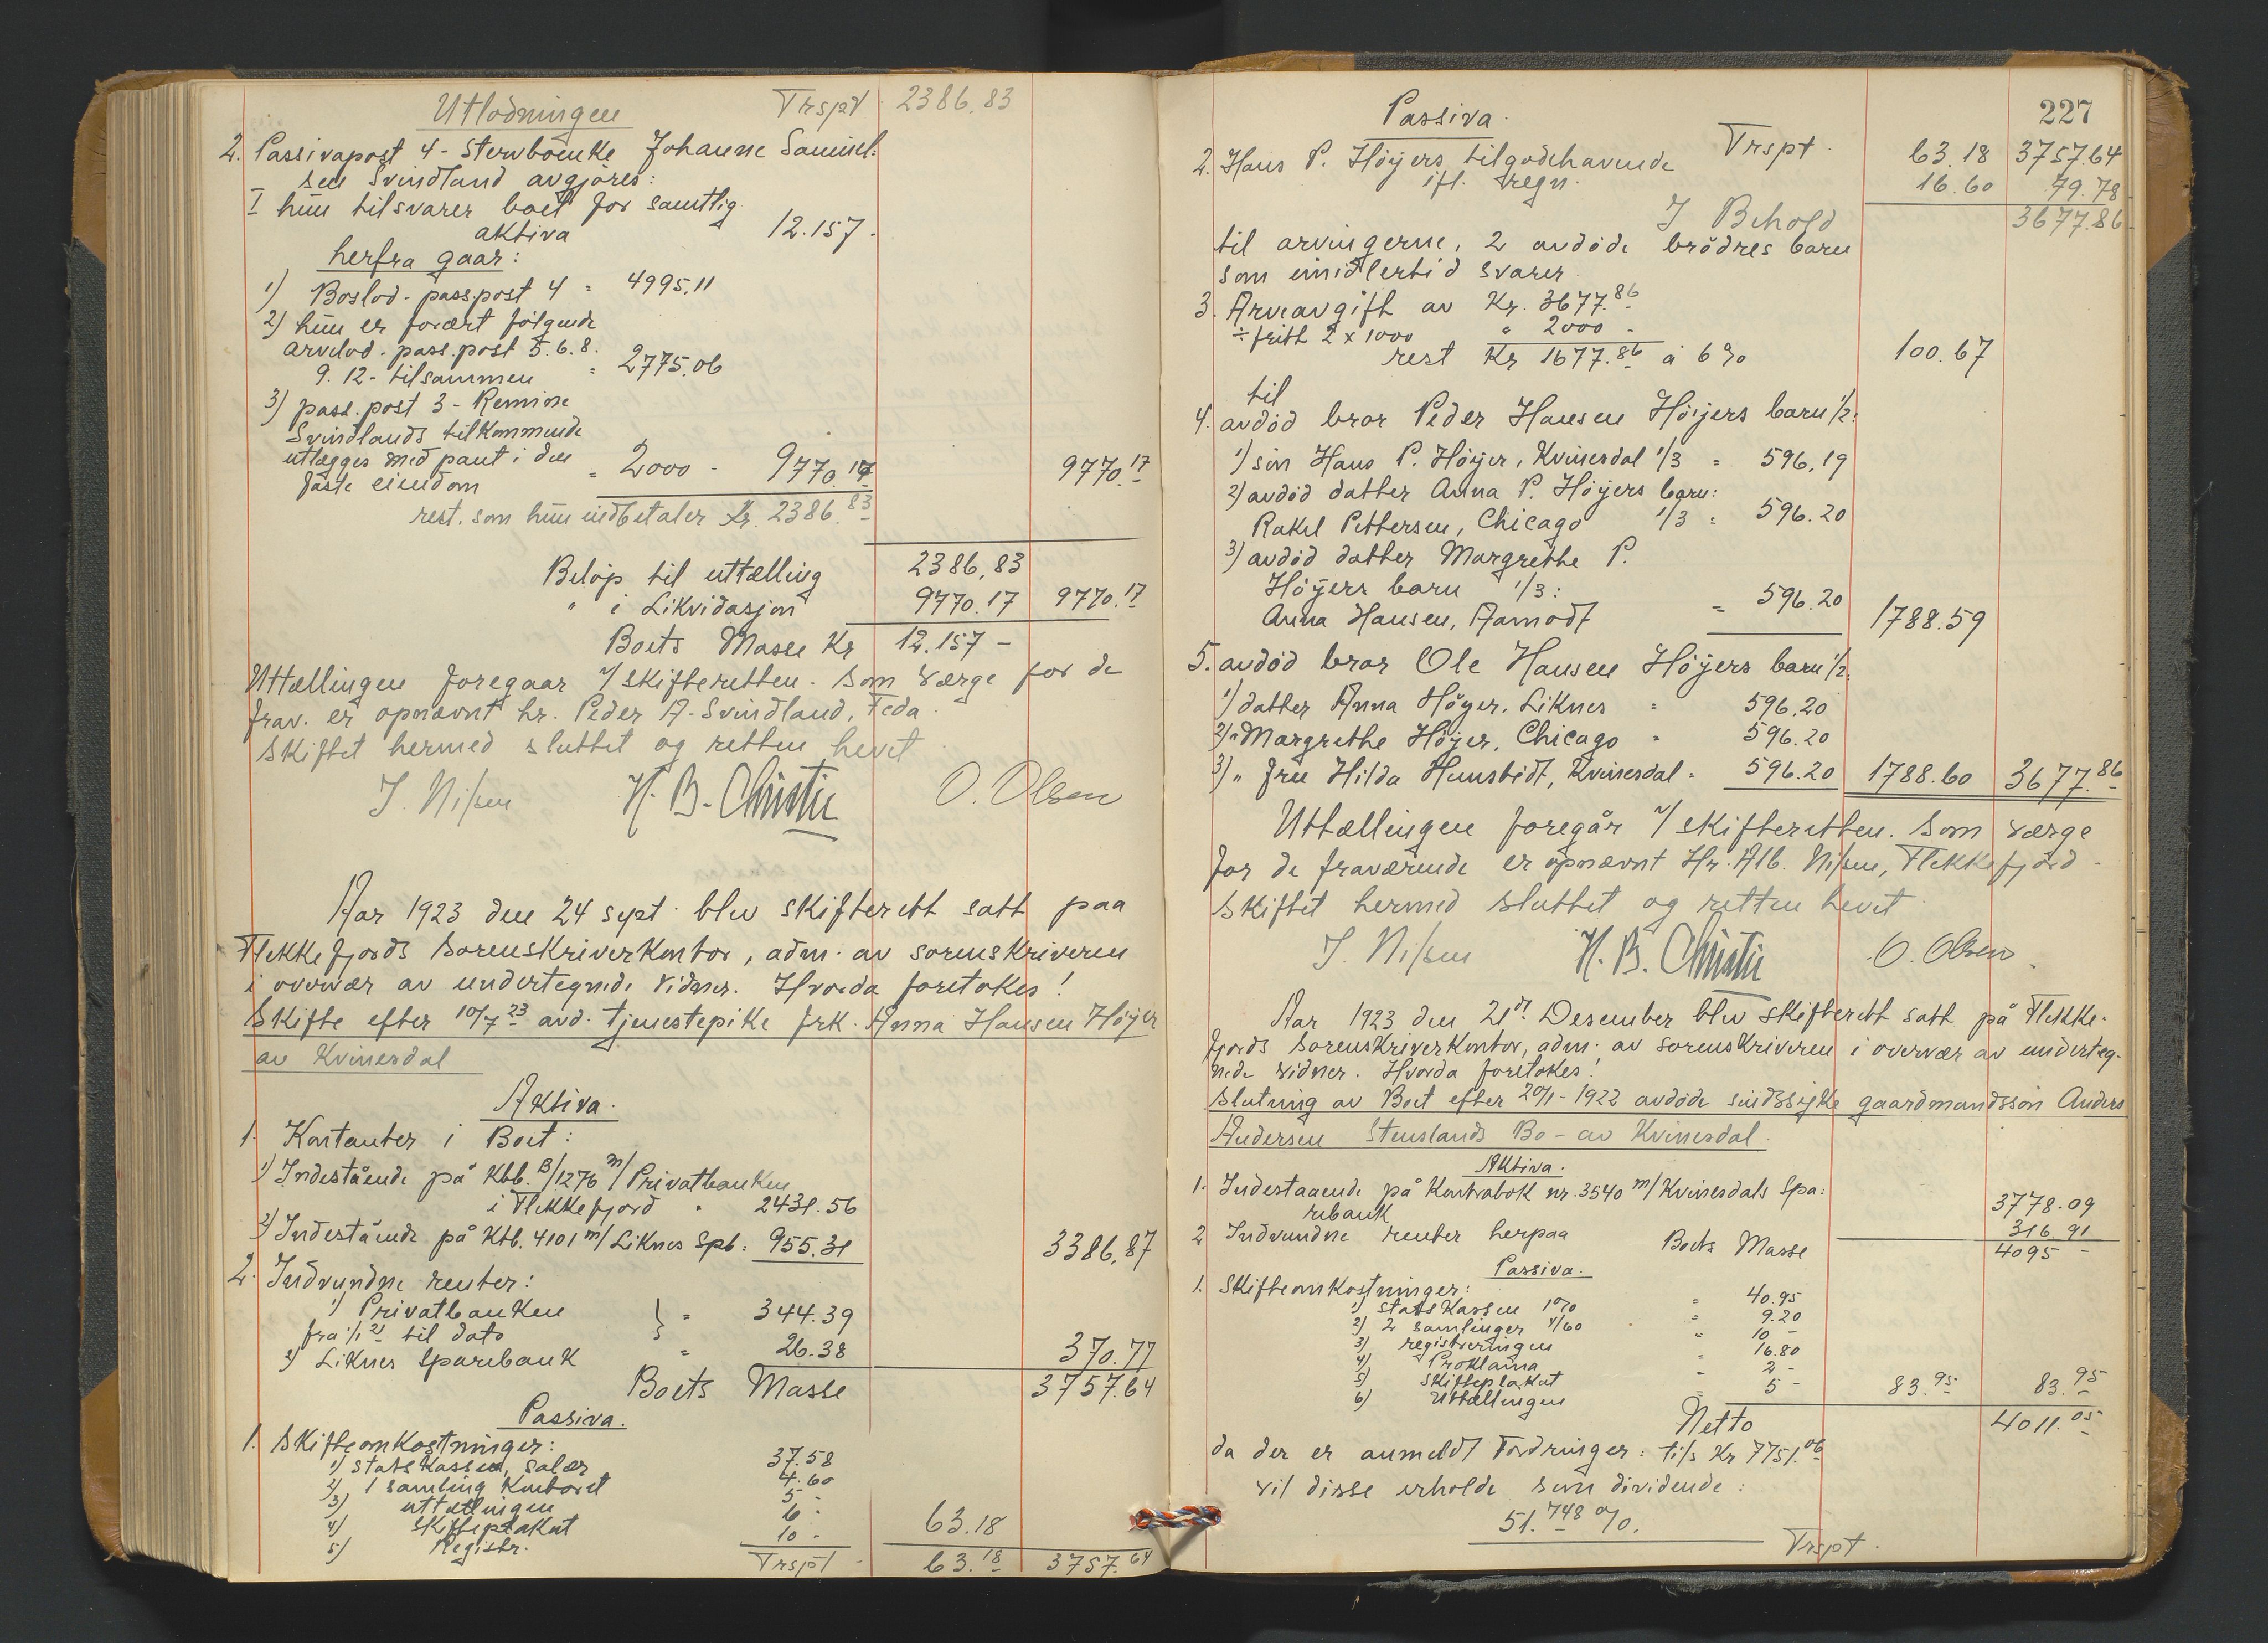 Utlodningen Trspt 2386,83
2. Passivapost 4 - Stervboenke Johanne Samuel-
sen Svindland avgjøres:
I hun tilsvarer boet for samtlig
aktiva 12.157.
herfra gaar:
1) Boslod - pass.post 4 = 4995,11
2) hun er forært følgende
arvelod. pass.post 5.6.8.
9. 12 - tilsammen = 2775,06
3) pass. post 3 - Remine
Svindlands tilkommende
utlægges med pant i den
faste eiendom = 2000 - 9770.17 9770.17
rest. som hun indbetaler Kr. 2386.83
Beløp til uttælling 2386,83
" i Likvidasjon 9770.17 9770.17
Boets Masse Kr 12.157 -
Uttællingen foregaar v/ skifteretten. Som værge for de
frav. er opnævnt hr. Peder A. Svindland, Feda.
Skiftet hermed sluttet og retten hevet.
J. Nissen H. B. Christie O. Olsen
Aar 1923 den 24 sept. blev skifterett satt paa
Flekkefjords Sorenskriverkontor, adm. av sorenskriveren
i overvær av undertegnede vidner. Hvorda foretokes!
Skifte efter 10/7 23 avd. tjenestepike frk. Anna Hansen Höjer
av Kvinesdal
Aktiva.
1. Kontanter i Boet:
1) Indestående på Kbb. B/1276 m/ Privatbanken
i Flekkefjord " 2431.56
2) Indestående på Ktb. 4101 m/ Liknes Spb: 955.31 3386,87
2. Indvundne renter:
1) Privatbanken } = 344.39
fra 1/1 21 til dato
2) Liknes Sparebank = 26.38 370.77
Boets Masse 3757.64
Passiva.
1. Skifteomkostninger:
1) Statskassen, salær 37.58
2) 1 samling Kontoret 4.60
3) uttællingen 5 -
4) Skifteplakat 6 -
5) Registr. 10 - 63.18
Trspt - 63.18 3757.64
227
Passiva.
Trspt. 63.18 3757.64
2. Hans P. Höÿers tilgodehavende
ifl. regn. 16.60 79.78
I Behold 3677.86
til arvingerne, 2 avdöde brödres barn
som imidlertid svarer
3. Arveavgift av Kr. 3677.86
÷ fritt 2 x 1000 " 2000 -
rest Kr 1677.86 á 6 % 100.67
til
4. avdöd bror Peder Hansen Höijers barn 1/2:
1) sön Hans P. Höijer, Kvinesdal 1/3 = 596,19
2) avdöd datter Anna P. Höijers barn:
Rakel Pettersen, Chicago 1/3 = 596.20
3) avdöd datter Margrethe P.
Höÿers barn 1/3:
Anna Hansen, Aamodt = 596.20 1788.59
5. avdöd bror Ole Hansen Höÿers barn 1/2:
1) datter Anna Höyer, Liknes = 596.20
2) " Margrethe Höyer, Chicago = 596.20
3) " fru Hilda Hunsbedt, Kvinesdal = 596.20 1788.60 3677.86
Uttællingen foregår v/ skifteretten. Som værge
for de fraværende er opnævnt Hr. Alb. Nissen, Flekkefjord.
Skiftet hermed sluttet og retten hevet.
J. Nissen H. B. Christie O. Olsen
Aar 1923 den 21de Desember blev skifterett satt på Flekke-
fjords Sorenskriverkontor, adm. av sorenskriveren i overvær av underteg-
nede vidner. Hvorda foretokes!
Slutning av Boet efter 20/1 - 1922 avdöde sindssyke gaardmandssön Anders
Andersen Stenslands Bo - av Kvinesdal.
Aktiva.
1. Indestaaende på Kontrabok nr. 3540 m/ Kvinesdals Spa-
rebank 3778.09
2 Indvundne renter herpaa 316 91
Boets Masse 4095 -
Passiva.
1. Skifteomkostninger:
1) Statskassen 1% = 40.95
2) 2 samlinger 4/60 = 9.20
3) registreringen " 10 -
4) Proklama " 16.80
5) Skifteplakat " 2 -
6) Uttællingen = 5 - 83.95 83.95
Netto 4011.05
da der er anmeldt Fordringer: til Kr 7751.06
vil disse erholde som dividende:
51.748 %.
Trspt.